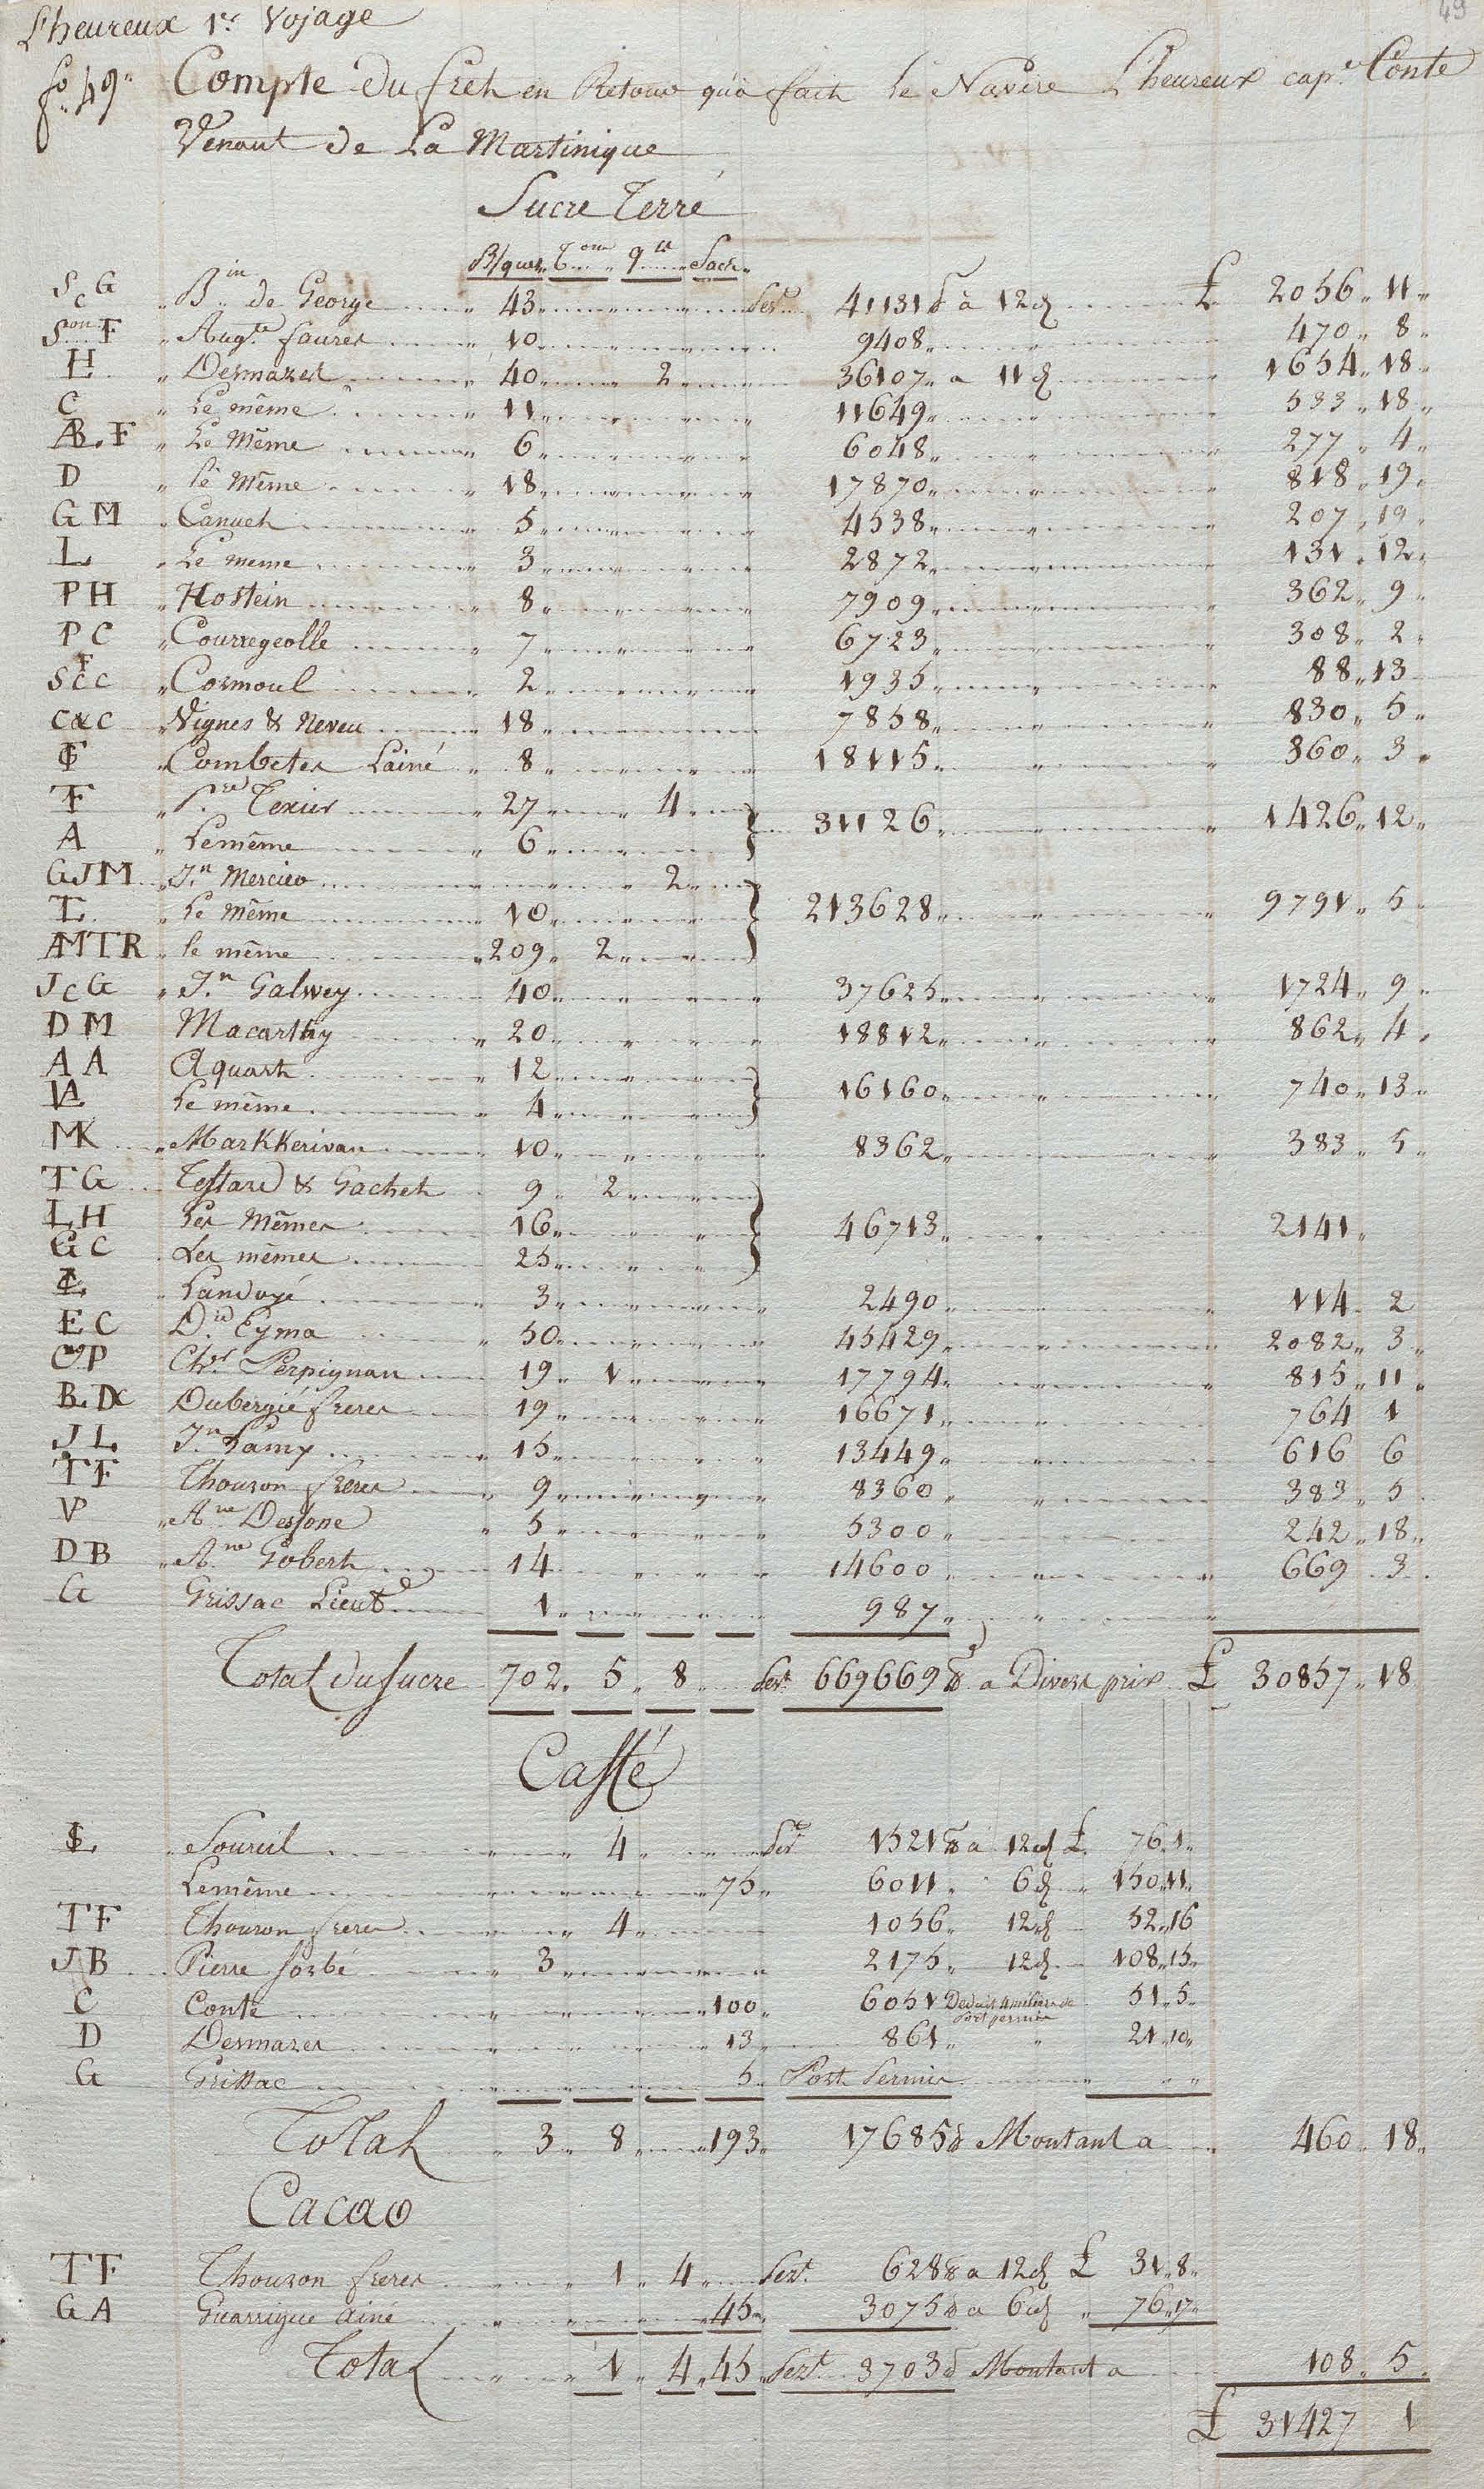 49
L'heureux 1er Voyage
fo 49" Compte du fret en Retour qu'a fait Le Navire L'heureux cap.e Conte
Venant de La Martinique
Sucre Terré
B/ques T..on q..ts Sacs
S c G " B.in de George 43 Pest 41131 lb à 12 d £ 2056 " 11 "
Son F " Augte faures 10 9408 " 470 " 8 "
H " Desmazes 40 2 36107 " a 11 d 1654 " 18 "
C " Le même 11 11649 " 533 " 18 "
AB.F " Le Même 6 6048 " 277 " 4 "
D " le Même 18 17870 " 818 " 19 "
G M " Canuet 5 4538 " 207 " 19 "
L " Le meme 3 2872 " 131 " 12 "
P H " Hostein 8 7909 " 362 " 9 "
P C " Courregeolle 7 6723 " 308 " 2 "
S F C C " Cormoul 2 1935 " 88 " 13
C & C " Vignes & Neveu 18 7858 " 830 " 5 "
" Combetes Lainé 8 18115 " 360 " 3 "
F " P.re Texier 27 4 } 31126 " 1426 " 12 "
A " Lemême 6
GJM " J.n Mercier 2 } 213628 " 9791 " 5
L " Le même 10
AMTR " le même 209 " 2
J c G " J.n Galwey 40 37625 " 1724 " 9 "
D M Macarthy 20 18812 " 862 " 4 "
A A Aquart 12 } 16160 " 740 " 13 "
VA Le même 4
MK " MarkKerivan 10 8362 " 383 " 5 "
T G Testard & Gachet 9 " 2 } 46713 " 2141 "
L H Les Mêmes 16
G C Les mêmes 25
Landayé 3 2490 " 114 " 2
E C D.el Eyma 50 45429 " 2082 " 3 "
P Ch.s Perpignan 19 " 1 17794 " 815 " 11 "
B. D Dubergié freres 19 16671 " 764 1
J L J.n Lamy 15 13449 " 616 6
T F Thouron freres 9 8360 " 383 " 5
V " A.ne Dessone 5 5300 " 242 " 18 "
D B " A.ne Gobert 14 14600 " 669 3
G Grissac Lieut 1 987 "
Total du sucre 702 " 5 " 8 Pest 669669 lb a Divers prix £ 30857 " 18
Caffé
L Soureil 4 Pest 1521 lb a 12 d £ 76 " 1 "
Lemême 75 6011 " 6 d 150 " 11 "
T F Thouron freres 4 1056 " 12 d 52 " 16
J B Pierre forbé 3 2175 " 12 d 108 " 15 "
C Conte 100 6051 Deduit 51 " 5 "
port permis
D Desmazes 13 861 " 21 " 10 "
G Grissac 5 Port Permis " "
Total 3 " 8 " 193 " 17685 lb Montant a 460 " 18 "
Cacao
T F Thouron freres 1 " 4 Pest 628 lb a 12 d £ 31 " 8 "
G A Guarrigue ainé 45 3075 lb a 6 d " 76 " 17 "
Total 1 " 4 " 45 " Pest 3703 lb Montant a 108 " 5 "
£ 31427 1